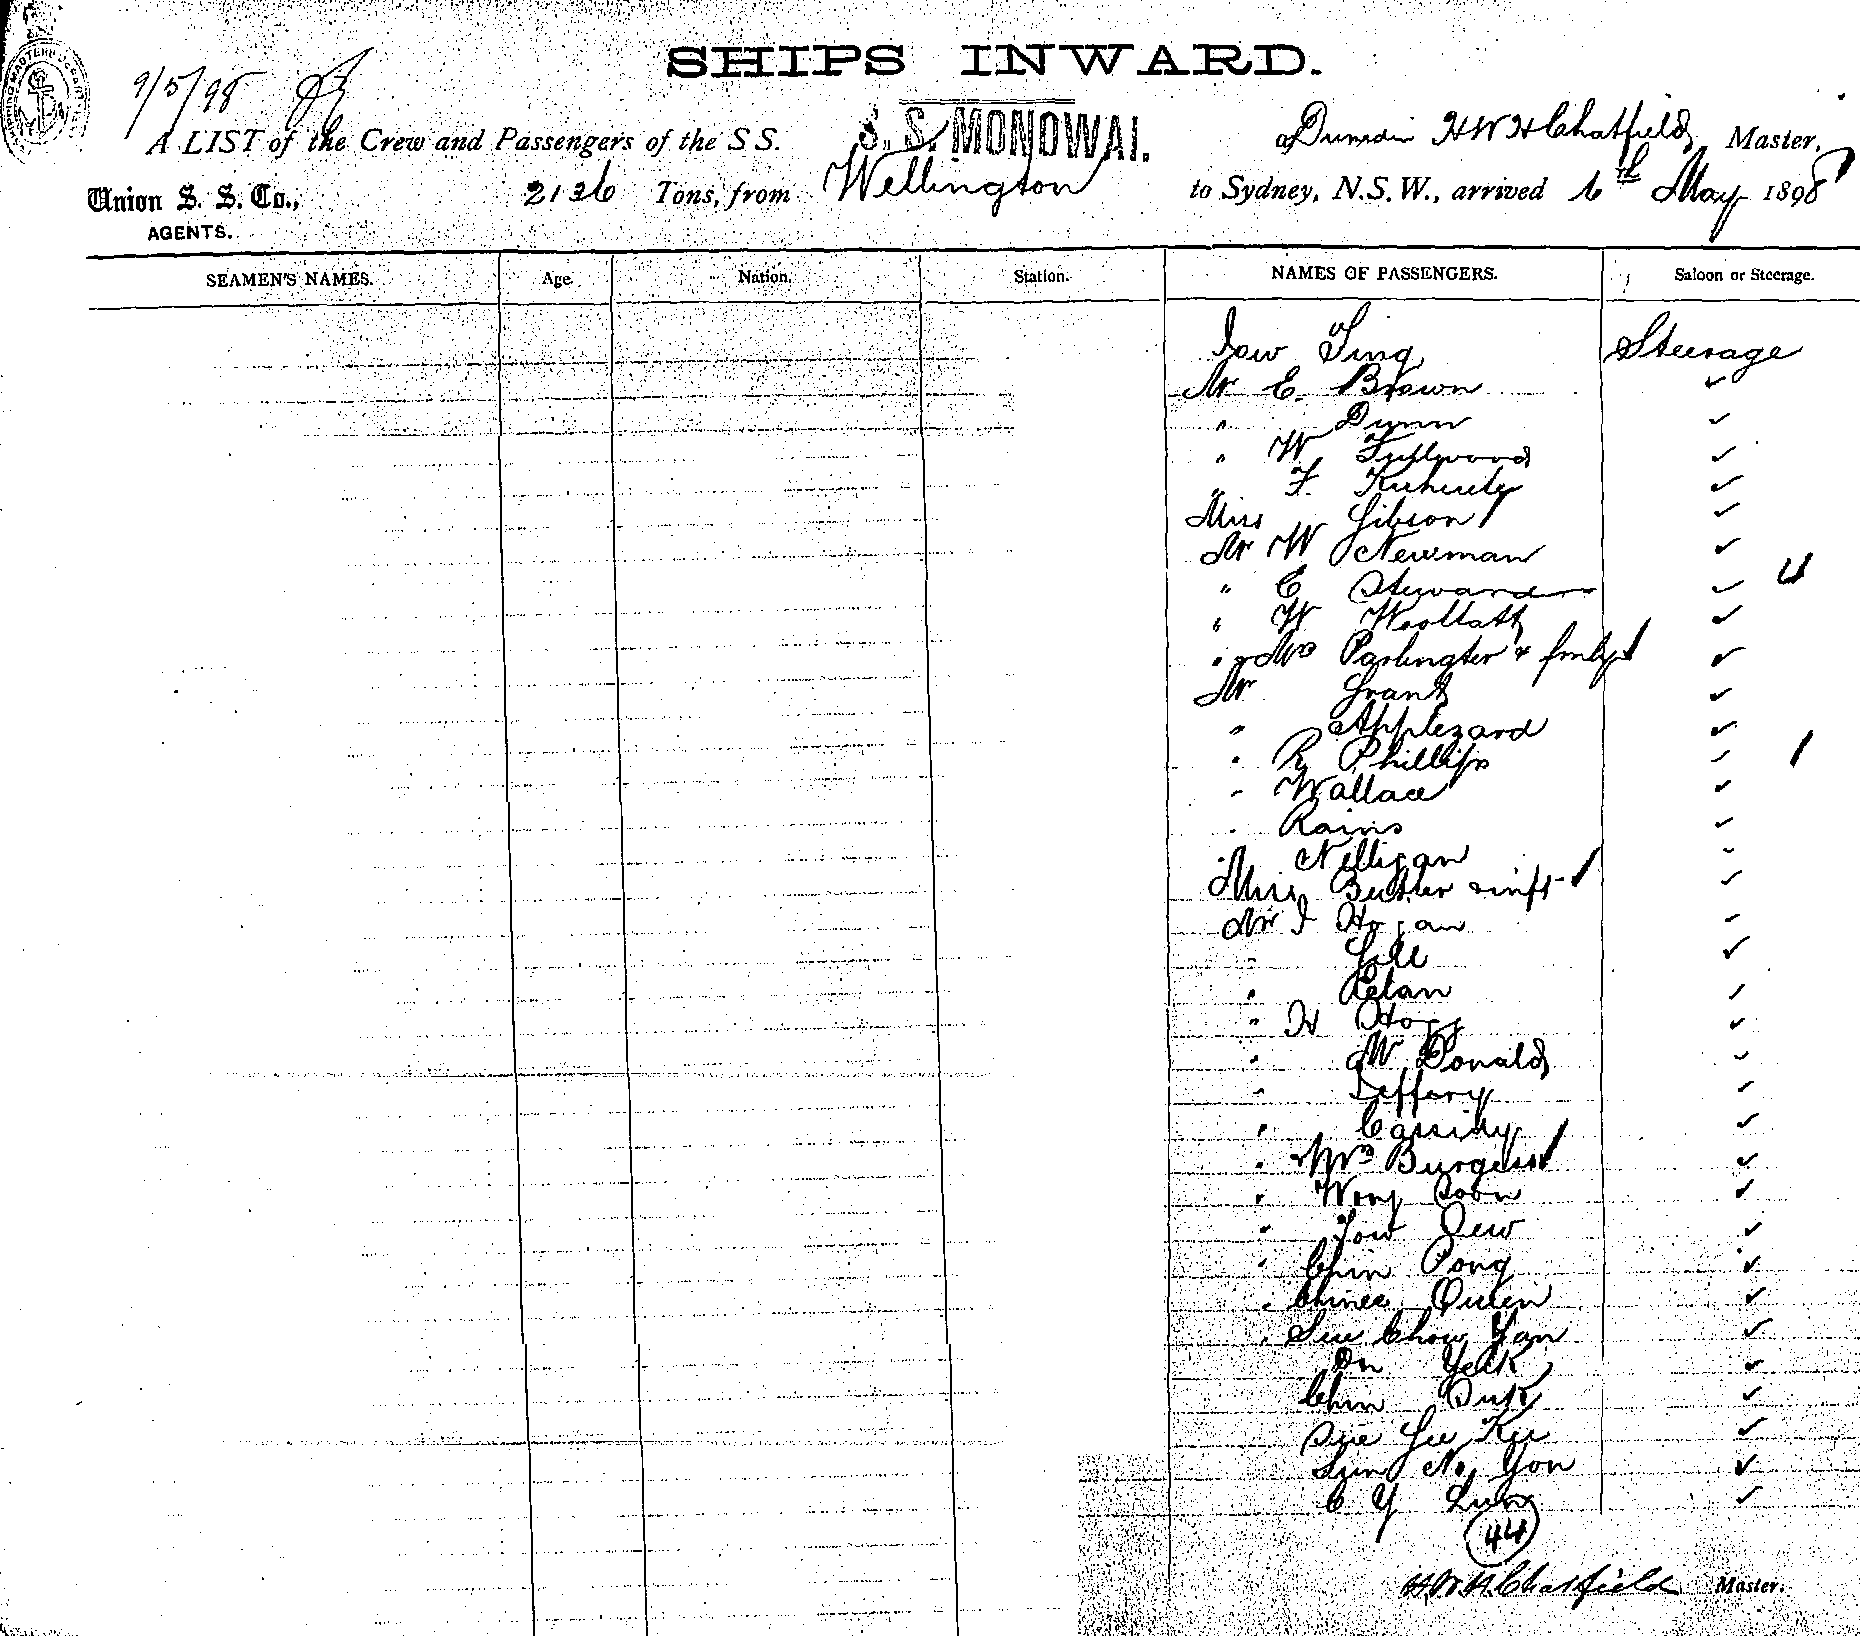 SHIPS INWARD.
9/5/98
A LIST of the Crew and Passengers of the S S. S. S. MONOWAI. Dunedin H W H Chatfield Master,
Union S. S. Co., 2136 Tons, from Wellington to Sydney, N.S.W., arrived 6th May 1898
AGENTS.
SEAMEN'S NAMES. Age. Nation. Station. NAMES OF PASSENGERS. Saloon or Steerage.
Sing Steerage
Mr E. Brown ✓
" Dunn ✓
" W Fullwood ✓
" F. ✓
Miss Gibson ✓
Mr W Newman ✓
" C Steward ✓ 4
" W Woollatt ✓
" & Mrs Partington & fmly ✓
Mr Grant ✓
" Appleyard ✓
" R Phillips ✓ 1
" Wallace ✓
" Rains ✓
" Nelligan ✓
Miss Butler & inft ✓
Mr J Hogan ✓
" Gill ✓
" ✓
" H Hogg ✓
" Mc Donald ✓
" Jeffery ✓
" Cassidy ✓
" Mrs Burgess ✓
" Wong Coon ✓
" Tow Dew ✓
" Chin Pong ✓
" Chinee Queen ✓
" Sue Chow Yan ✓
On Yeck ✓
Chin Duk ✓
Gee Kee ✓
Yon ✓
C Y ✓
44
H.W.H. Chatfield Master.